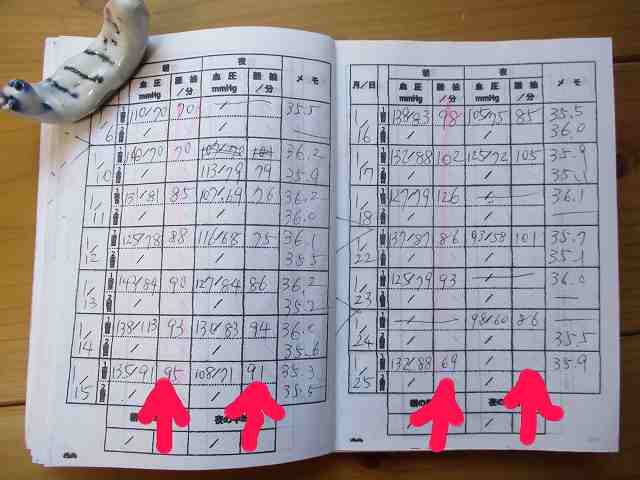 朝 夜
血圧 mmHg 脈拍 /分 血圧 mmHg 脈拍 /分 メモ
1/6 110/70 70 / 35.5
1/10 140/70 70 36.2
/ 113/79 79
1/11 131/81 85 107/69 76 36.2
/ / 36.0
1/12 125/78 88 116/68 75 36.1
/ / 35.5
1/13 90 127/84 86 36.2
/ /
1/14 138/113 93 94 36.0
/ / 35.6
1/15 135/91 95 108/71 91 35.3
/ / 35.5
朝の 夜の平
/ /
朝 夜
月/日 血圧 mmHg 脈拍 /分 血圧 mmHg 脈拍 /分 メモ
1/16 139/83 98 105/75 85 35.5
/ / 36.0
1/17 132/88 102 125/72 105 35.9
/ / 35.1
1/18 127/79 126 36.1
/ /
1/22 137/87 86 93/58 101 35.7
/ / 35.1
1/23 125/79 93 36.0
/ /
1/24 98/60 86
/ / 35.5
1/25 132/88 69 / 35.9
/ /
朝の 夜の
/ /